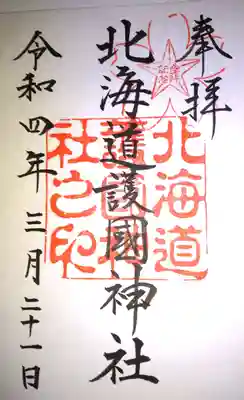 奉拝
北海道護國神社
北海道護國神社之印
令和四年三月二十一日